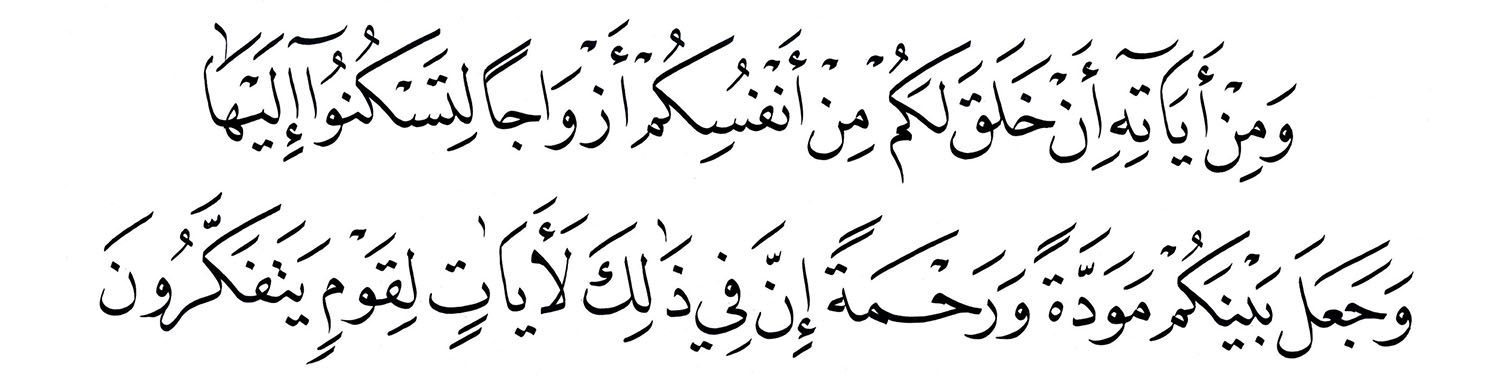 وَمِنْ أَيَاتِهِ أَنْ خَلَقَ لَكُمْ مِنْ أَنْفُسِكُمْ أَزْوَاجًا لِتَسْكُنُوآ إِلَيْهَا
وَجَعَلَ بَيْنَكُمْ مَوَدَّةً وَرَحْمَةً إِنَّ فِي ذٰلِكَ لَأَيَاتٍ لِقَوْمٍ يَتَفَكَّرُونَ